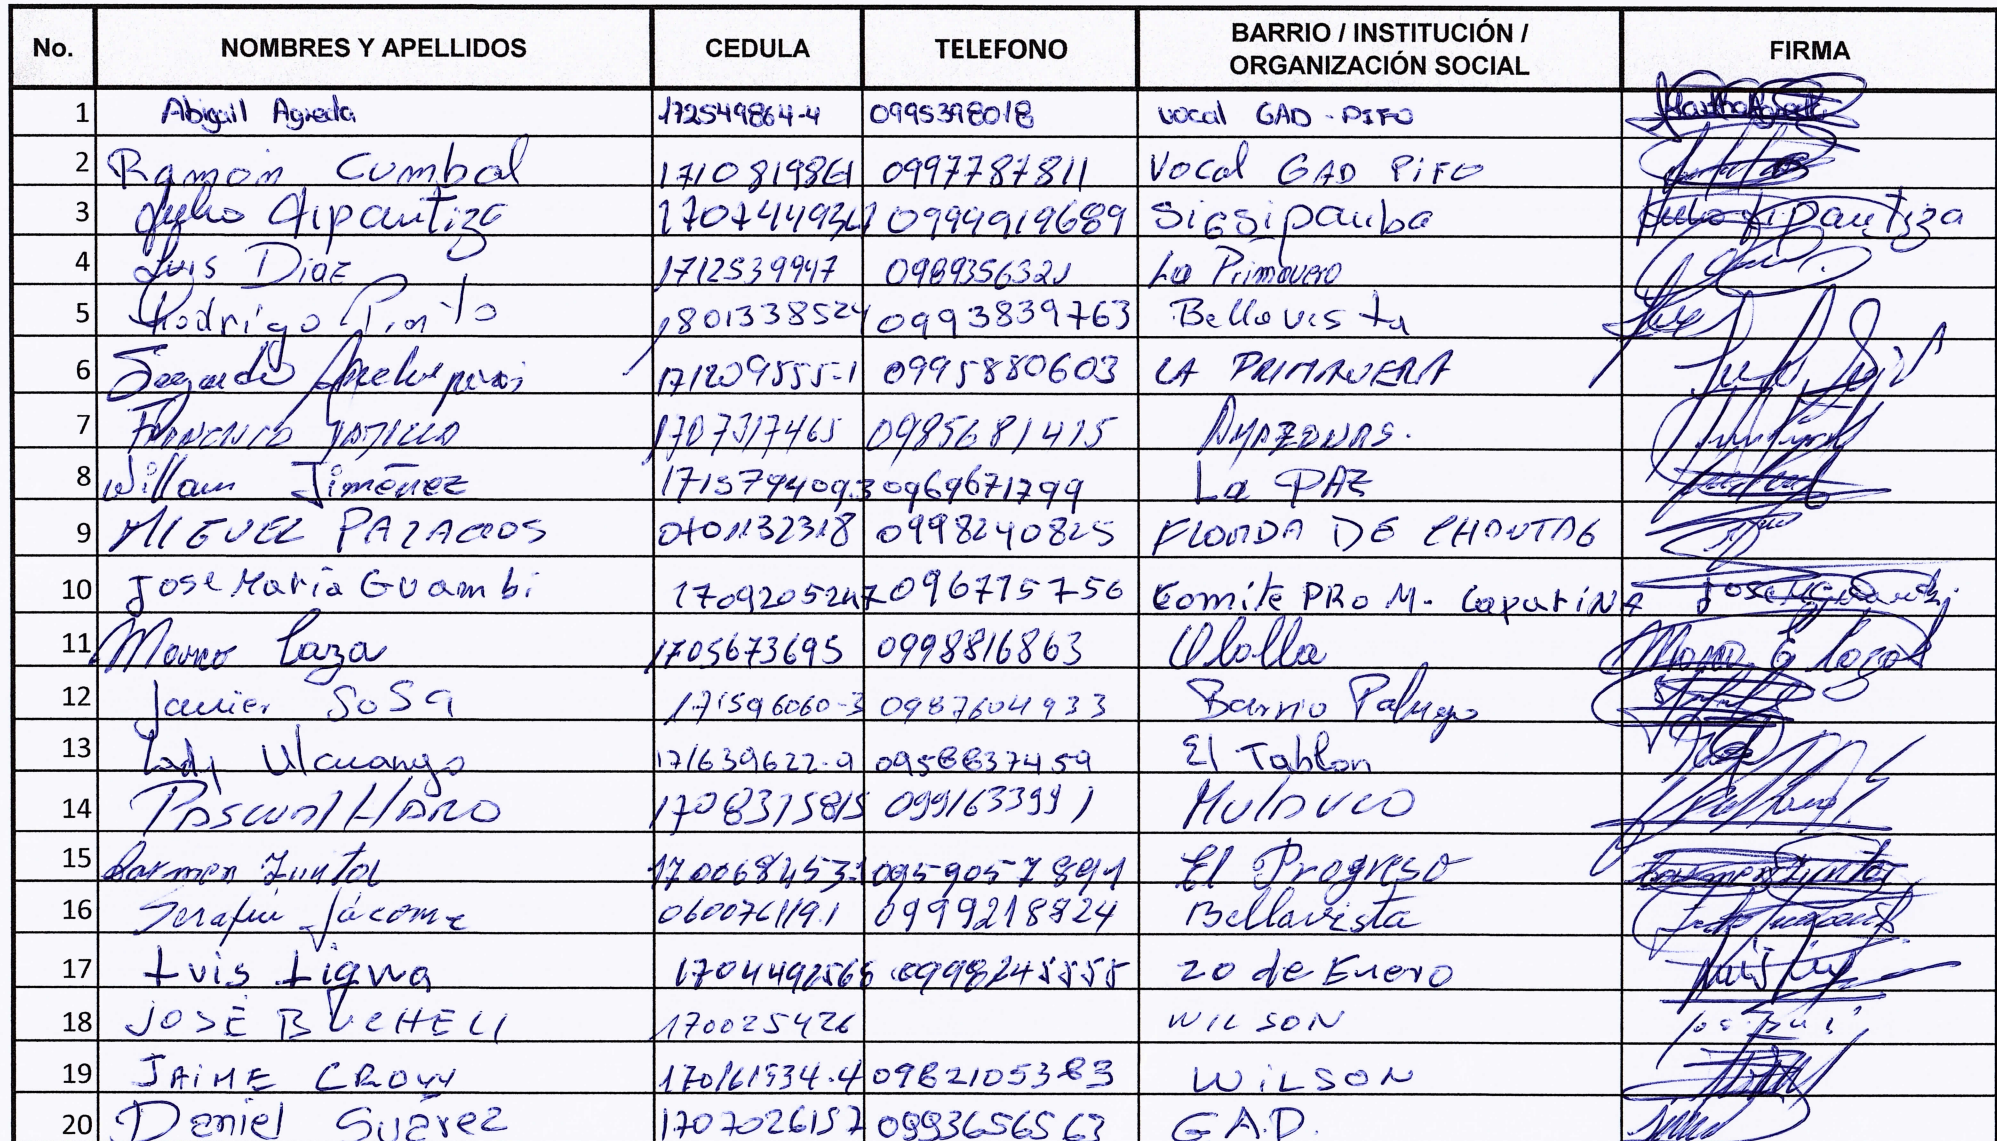 No. NOMBRES Y APELLIDOS CEDULA TELEFONO BARRIO / INSTITUCIÓN / ORGANIZACIÓN SOCIAL FIRMA
1 Abigail Agreda 172549864-4 0995398018 vocal GAD - PIFO
2 Ramón Cumbal 1710819861 0997787811 Vocal GAD PIFO
3 Julio Aipantiza 0994919689 Sigsipamba
4 Luis Diaz 1712539947 0989356321 La Primavera
5 Rodrigo Pinto 1801338524 0993839763 Bellavista
6 Segundo 171209555-1 0995880603 LA PRIMAVERA
7 1707317465 0985681415 AMAZONAS.
8 William Jiménez 171579409.3 0969671799 La PAZ
9 MIGUEL PALACIOS 0998240825 FLORIDA DE CHANTAG
10 Jose Maria Guambi 1709205247 096775756 Comite PRO M. Caparina
11 Marco Laza 1705673695 0998816863 Ololla
12 Javier SoSa 171596060-3 0987604933 Barrio Palugo
13 Lady Ulcuango 171639622-9 0958837459 El Tablon
14 PASCUAL HARO 1708375815 099163399 1 MULAUCO
15 Carmen Juntol 0959057891 El Progreso
16 Serafin Jácome 060076119.1 0999218924 Bellavista
17 Luis Ligña 0998245555 20 de Enero
18 JOSÉ BUCHELI 170025426 WILSON
19 JAIME CROW 170161534.4 0982105383 WiLSON
20 Daniel Suárez 1707026157 0993656563 G.A.D.